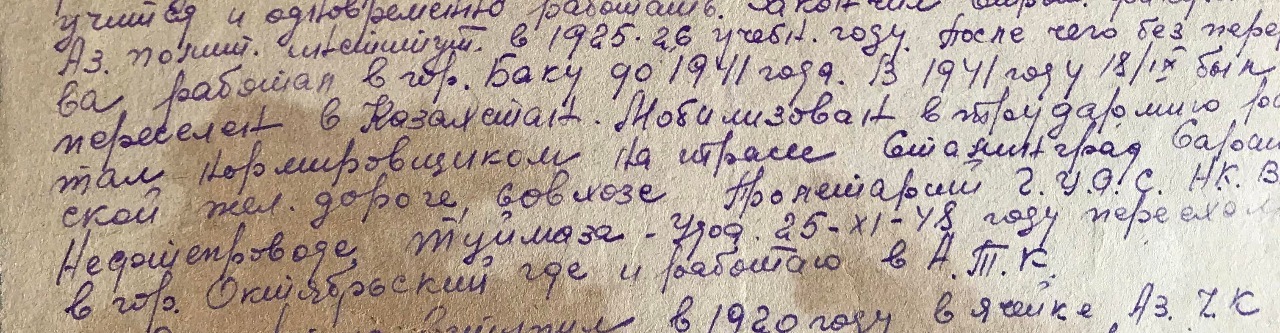 учится и одновременно работать. Закончил
Аз. полит. институт. в 1925-26 учебн. году. После чего без пере
ва работал в гор. Баку до 1941 года. В 1941 году 18/IX был
переселен в Казахстан. Мобилизован в трудармию ра
тал нормировщиком на трассе Сталинград Сарат
ской жел. дороге, совхозе Пролетарий НК. В
Недфтепроводе, Туймаза - 25-XI-48 году переехал
в гор. Октябрьский где и работаю в А.Т.К.
в 1920 году в ячейке Аз. Ч.К